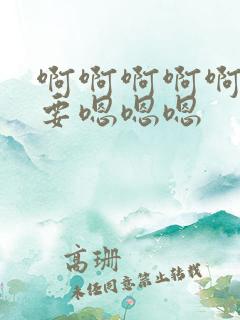 啊啊啊啊啊
要嗯嗯嗯
高珊
未经同意禁止转载